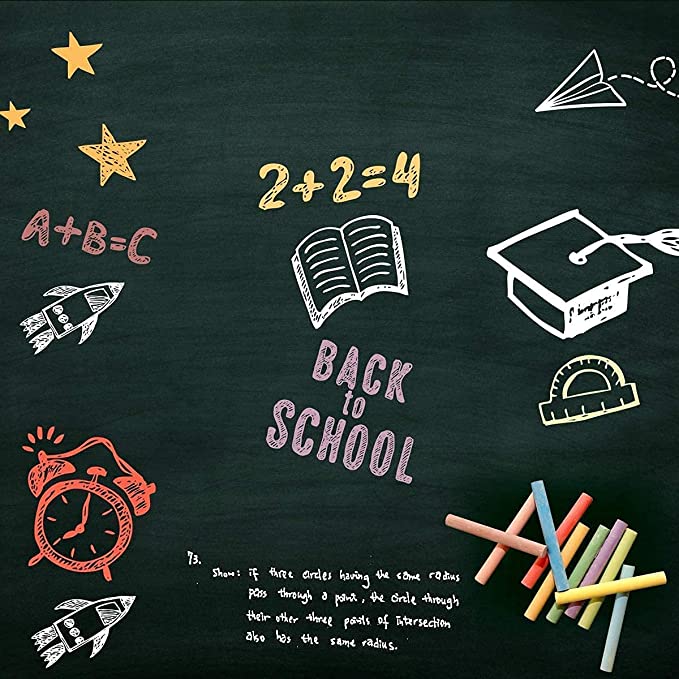 2+2=4
A+B=C
BACK
to
SCHOOL
73.
Show: if three circles having the same radius
pass through a point, the circle through
their other three points of intersection
also has the same radius.